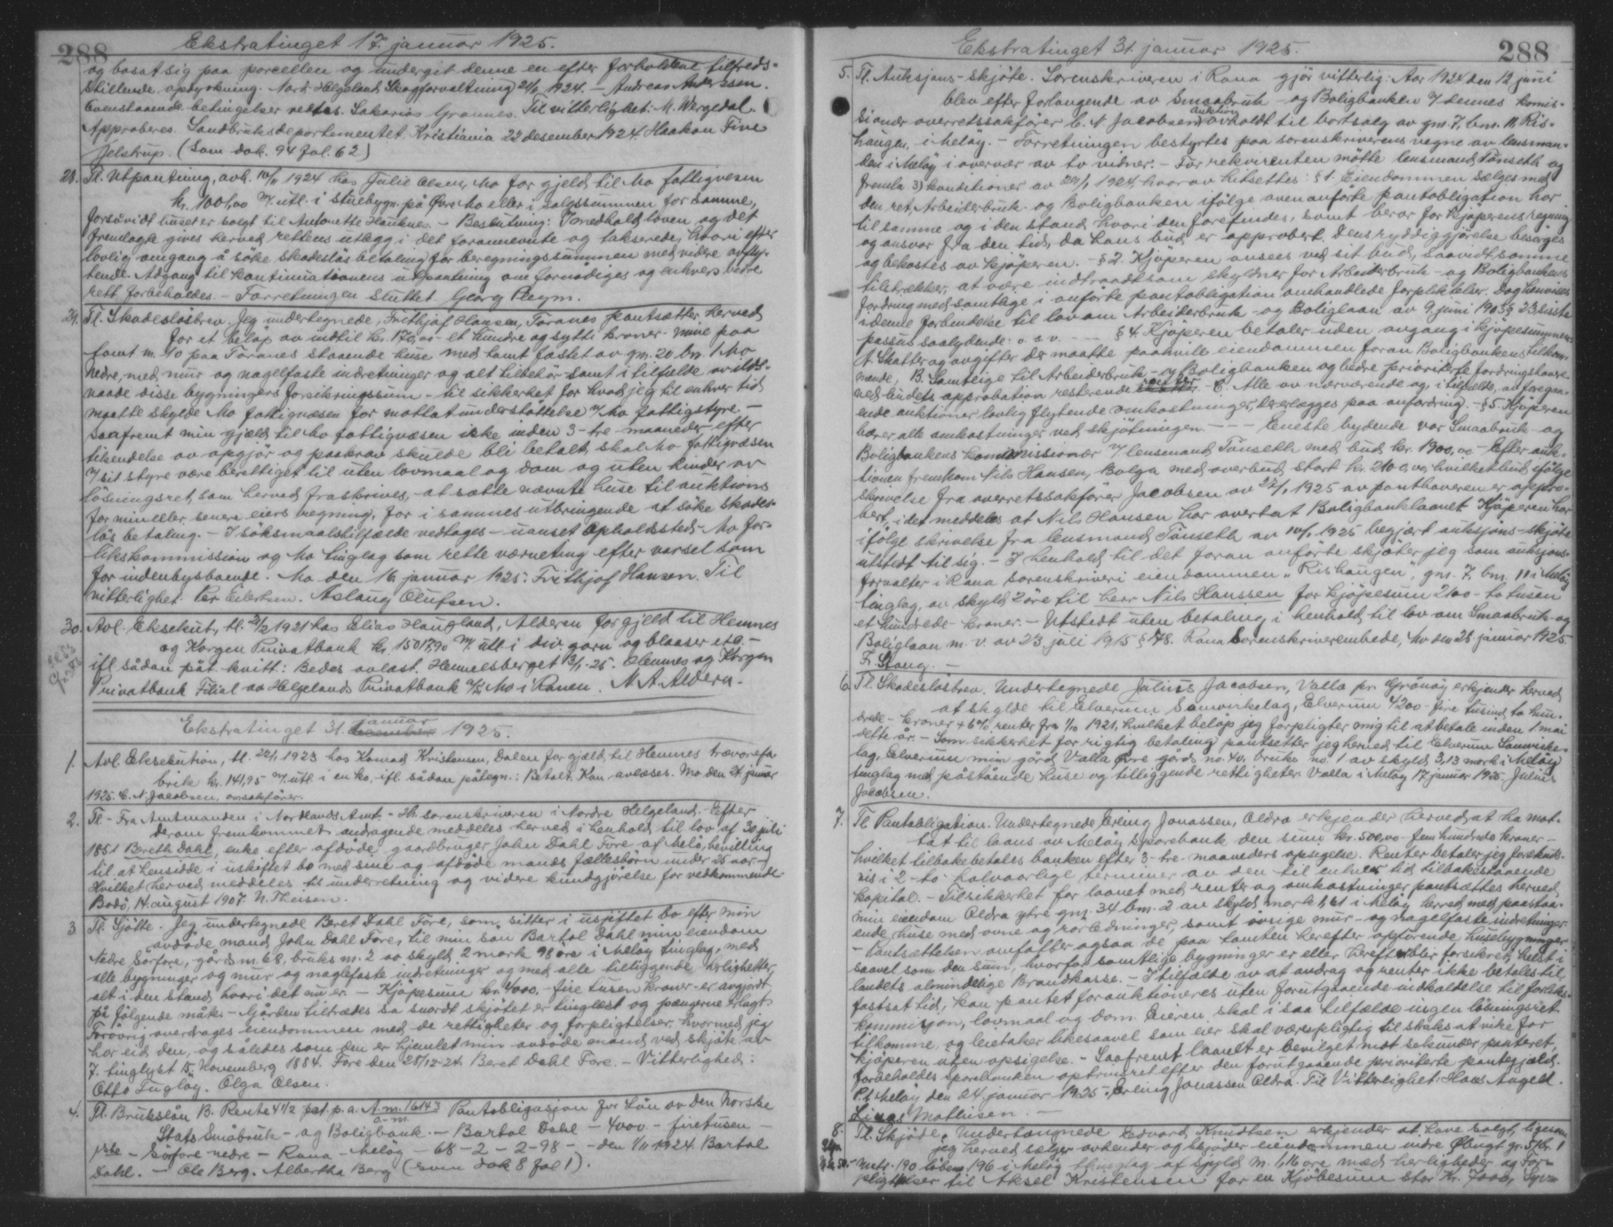 288
Ekstratinget 17. januar 1925.
og bosat sig paa porcellen og undergit denne en efter forholdene tilfreds-
stillende opdyrkning. Nord Helgeland Skogforvaltning 21/11 1924. — Andreas Andersen.
Ovenstaaende betingelser vedtas. Zakarias Grannes. Til vitterlighet: M. Wergedal
Approberes. Landbruksdepartementet. Kristiania 22 desember 1924 Haakon Five
Jelstrup. (Som dok. 94 fol. 62)
28. Tl. Utpantning, avh. 10/11 1924 hos Julie Olsen, Mo for gjeld til Mo fattigvesen
kr. 100,00 m/ utl. i stuebygn. på Øvre Mo eller i salgssummen for samme,
forsåvidt huset er solgt til Antonette Hauknes. — Beslutning: I medhold loven og det
fremlagte gives herved rettens utlegg i det forannevnte og takserede, hvori efter
lovlig omgang å søke skadesløs betaling for beregningssummen med videre av fly-
tende. Adgang til kontinuationens utpantning om fornødiges og enhver bedre
rett forbeholdes. — Forretningen sluttet. Georg Pleym.
29. Tl. Skadesløsbrev. Jeg undertegnede, Frithjof Hansen, Toranes pantsætter herved
for et beløp av indtil kr. 170,00 et hundre og sytti kroner mine paa
tomt nr. 10 paa Toranes staaende huse med tomt fæstet av gn. 20 bn. 1 Mo
Nedre, med mur og nagelfaste indretninger og alt tilbehør samt i tilfælde av ilds-
vaade disse bygningers forsikringssum — til sikkerhet for hvad jeg til enhver tid
maatte skylde Mo fattigvæsen for mottat understøttelse m/ Mo fattigstyre —
Saafremt min gjæld til Mo fattigvæsen ikke inden 3 - tre - maaneder efter
tilsendelse av opgjør og paakrav skulde bli betalt, skal Mo fattigvæsen
m/ sit styre være berettiget til uten lovmaal og dom og uten hinder av
løsningsret, som herved fraskrives, at sætte nævnte huse til auktions
for min eller senere eiers regning, for i sammes utbringende at søke skades-
løs betaling. — I søksmaalstilfælde vedtages — uanset opholdssted — Mo for-
likskommission og Mo tinglag som rette værneting efter varsel som
for indenbysboende. Mo den 16 januar 1925. Frithjof Hansen. Til
vitterlighet: Per Eilertsen. Aslaug Olufsen.
30. Avl. Eksekut., tl. 2/2 1921 hos Elias Haugland, Alderen for gjeld til Hemnes
og Korgen Privatbank kr. 15017,90 m/ utl. i div. garn og blaaser etc. —
ifl. sådan påt. kvitt: Bedes avlast. Hemnesberget 13/1-25. Hemnes og Korgen
Privatbank Filial av Helgelands Privatbank A/S Mo i Ranen. M. A. Aldern.
Ekstratinget 31. januar 1925.
1. Avl. Eksekution, tl. 20/1 1923 hos Konrad Kristensen, Dalen for gjæld til Hemnes trævarefa-
brik kr. 141,95 m/ utl. i en ko, ifl. sådan pålegn: Betalt. Kan avlæses. Mo den 24 januar
1925. C. N. Jacobsen, o.r.sakfører.
2. Tl — Fra Amtmanden i Nordlands Amt. — Hr. sorenskriveren i Nordre Helgeland. — Efter
derom fremkommet andragende meddeles herved i henhold til lov af 30 juli
1851 Breth Dahl, enke efter afdøde gaardbruger John Dahl Fore af Melø, bevilling
til at hensidde i uskiftet bo med sine og afdøde mands fællesbørn under 25 aar —
Hvilket herved meddeles til underretning og videre kundgjørelse for vedkommende
Bodø, 14. august 1907. N. Theisen.
3. Tl. Sjøtte. Jeg undertegnede Beret Dahl Fore, som sitter i uskiftet bo efter min
avdøde mand John Dahl Fore, til min søn Bartol Dahl min eiendom
Nedre Sørfore, gårds nr. 68, bruks nr. 2 av skyld 2 mark 98 øre i Meløy tinglag, med
alle bygninger og mur og naglefaste indretninger og med alle tilliggende herligheter,
alt i den stand, hvori det nu er — Kjøpesum kr. 4000. — fire tusen kroner — er avgjort
på følgende måte — Gården tiltrædes saa snart skjøtet er tinglæst og pengerne erlagt
Forøvrig overdrages eiendommen med de rettigheter og forpligtelser hvormed jeg
har eid den, og således som den er hjemlet min avdøde mand ved skjøte av
7. tinglyst 15. November 1884. Fore den 28/12-24. Beret Dahl Fore. — Vitterlighed:
Otto Fugløy. Olga Olsen.
4. Tl. Brukslån B. Rente 4 1/2 pct. p.a. A.m. 16143 Pantobligasjon for Lån av den Norske
Stats Småbruk- og Boligbank. — Bartol Dahl — 4000 — firetusen —
pste — Sørfore nedre — Rana — Meløy — 68 - 2 - 2 - 98 — den 1/11 1924 Bartol
Dahl. — Ole Berg. Albertha Berg (som dok 8 fol 1).
288
Ekstratinget 31. januar 1925.
5. Tl. Auksjons-skjøte. Sorenskriveren i Rana gjør vitterlig: Aar 1924 den 12 juni
blev efter forlangende av Smaabruk- og Boligbanken m/ dennes komis-
sionær overretssakfører C. N. Jacobsen auktion avholdt til bortsalg av gn. 7, bn. 11 Ris-
haugen i Meløy. — Forretningen bestyrtes paa sorenskriverens vegne av lensman-
den i Meløy i overvær av to vidner. — For rekvirenten møtte lensmand Tønseth og
fremla 3) konditioner av 20/1 1924 hvorav hitsettes: § 1. Eiendommen sælges med
den ret, Arbeiderbruk- og Boligbanken ifølge ovenanførte pantobligation har
til samme og i den stand, hvori den forefindes, samt beror for kjøperens regning
og ansvar fra den tid, da hans bud er approbert. Dens ryddiggjørelse besørges
og bekostes av kjøperen. — § 2. Kjøperen ansees ved sit bud, saavidt somme
tilstrekker, at være indtraadt som skyldner for Arbeiderbruk- og Boligbankens
fordring med samtlige i anførte pantobligation omhandlede forplikelser. Dog henvises
i denne forbindelse til lov om Arbeiderbruk- og Boliglaan av 9 juni 1903 § 23 siste
passus saalydende: o.s.v. — § 4 Kjøperen betaler uden avgang i kjøpesummen
A. Skatter og avgifter der maatte paahvile eiendommen foran Boligbankens tilkom-
mende, B. Samtlige til Arbeiderbruk- og Boligbanken og bedre prioriterte fordringshavere
ved budets approbation resterende renter. C. Alle av nærværende og, i tilfelde, av foregaa-
ende auktioner lovlig flytende omkostninger, der erlægges paa anfordring. — § 5 Kjøperen
bærer alle omkostninger ved skjøtningen — — — Eneste bydende var Smaabruk- og
Boligbankens kommissionær m/ lensmand Tønseth med bud kr. 1300,00 — Efter auk-
tionen fremkom Nils Hansen, Bolga med overbud stort kr. 2100,00, hvilket bud ifølge
skrivelse fra overretssakfører Jacobsen av 22/1 1925 av panthaveren er appro-
bert, idet meddeles at Nils Hansen har overtat Boligbanklaanet. Kjøperen har
ifølge skrivelse fra lensmand Tønseth av 10/1 1925 begjært auksjons-skjøte
utstedt til sig. — I henhold til det foran anførte skjøter jeg som auksjons-
forvalter i Rana sorenskriveri eiendommen "Rishaugen", gn. 7, bn. 11 i Meløy
tinglag, av skyld 2 øre til herr Nils Hanssen for kjøpesum 2100 — to tusen
et hundrede kroner. — Utstedt uten betaling i henhold til lov om Smaabruk- og
Boliglaan m.v. av 23 juli 1915 § 48. Rana Sorenskriverembede, Mo den 28 januar 1925
F. Stang. —
6. Tl. Skadesløsbrev. Undertegnede Julius Jacobsen, Valla pr. Grønøy, erkjender herved
at skylde til Elverum Samvirkelag, Elverum 4200 — fire tusind to hun-
drede — kroner + 6 % renter fra 1/10 1921, hvilket beløp jeg forpligter mig til at betale inden 1 mai
dette år. — Som sikkerhet for rigtig betaling pantsetter jeg herved til Elverum Samvirke-
lag, Elverum min gård Valla øvre gårds no. 40. bruks no. 1 av skyld 3,13 mark i Meløy
tinglag med påstående huse og tilliggende rettigheter. Valla i Meløy 17 januar 1925. Julius
Jacobsen.
7. Tl. Pantobligation. Undertegnede Erling Jonassen, Oldra erkjender herved, at ha mot-
tat til laans av Meløy Sparebank den sum kr. 500,00 — fem hundrede kroner —
hvilket tilbakebetales banken efter 3 - tre - maaneders opsigelse. Renter betaler jeg forskuds-
vis i 2 - to - halvaarlige terminer av den til enhver tid tilbakestaaende
kapital. — Til sikkerhet for laanet med renter og omkostninger pantsættes herved
min eiendom Oldra ytre gnr. 34 bnr. 2 av skyld mark 1,61 i Meløy herred med paastaa-
ende huse med ovne og rørledninger, samt øvrige mur- og nagelfaste indretninger
— Pantsettelsen omfatter ogsaa de paa tomten herefter opførende husebygninger
saavel som den sum, hvorfor samtlige bygninger er eller herefter bliver forsikret, helst i
landets almindelige Brandkasse. — I tilfælde av at avdrag og renter ikke betales til
fastsat tid, kan pantet foranktioneres uten forutgaaende indkaldelse til forliks-
kommisjon, lovmaal og dom. Eieren skal i saa tilfælde ingen løsningsret
tilkomme, og leietaker likesaavel som eier skal være pligtig til straks at vike for
kjøperen uten opsigelse. — Saafremt laanet er bevilget mot sekundær panteret,
forbeholdes Sparebanken optrinsret efter den forutgaaende prioriterte pantegjæld.
P.t. Meløy den 24 januar 1925. Erling Jonassen Oldra. Til Vitterlighet: Hans Angell.
Linas Mathisen. —
8. Tl. Skjøde. Undertegnede Edvard Knudtsen erkjender at have solgt, ligesom
jeg herved sælger avhender og skjøder eiendommen indre Øbugt gr. 94 br. 1
matr. 190 løbenr. 196 i Meløy Thinglag af Skyld M. 1,16 øre med herligheder og For-
pligtelser til Aksel Kristensen for en Kjøbesum stor Kr. 7000, Syv-